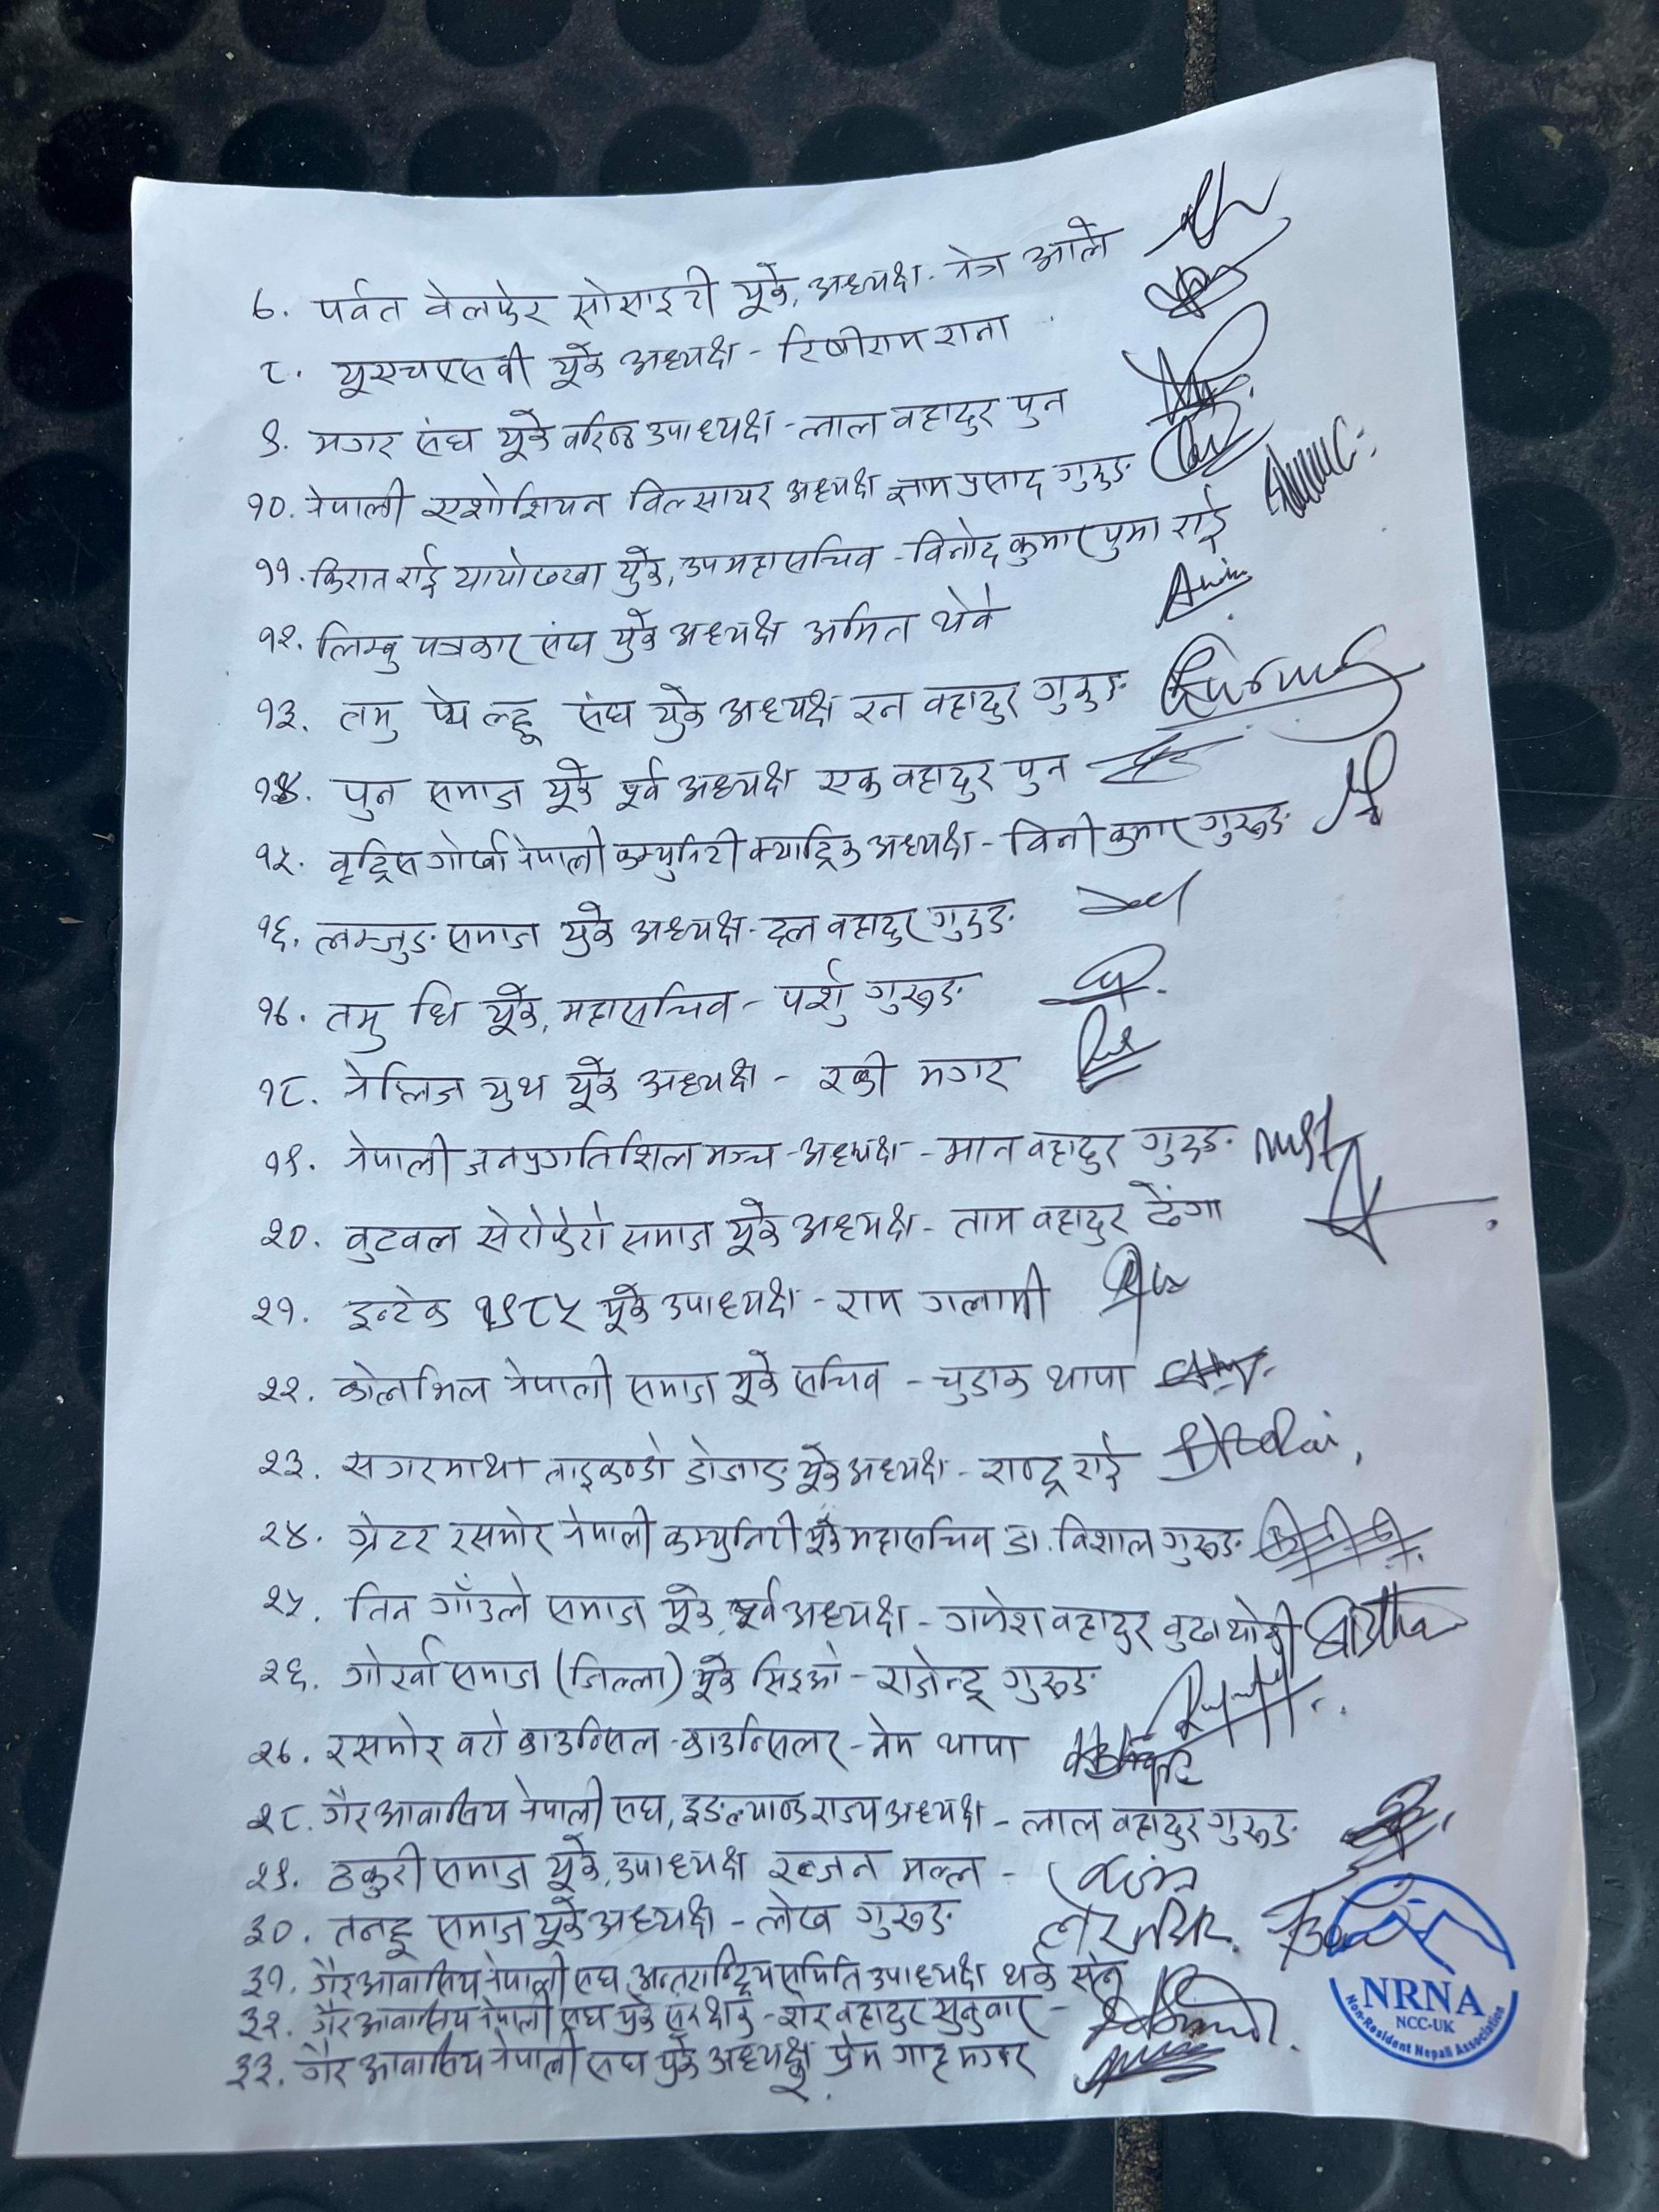 ७. पर्वत वेलफेर सोसाइटी यूके, अध्यक्ष - नेत्र आले
८. यूएचएसवी यूके अध्यक्ष - रिषीराम राना
९. मगर संघ यूके वरिष्ठ उपाध्यक्ष - लाल वहादुर पुन
१०. नेपाली एशोशियन विल्सायर अध्यक्ष ज्ञाम प्रसाद गुरुङ
११. किरात राई यायोख्खा युके, उपमहासचिव - विनोद कुमार पुमा राई
१२. लिम्बु पत्रकार संघ युके अध्यक्ष अमित थेवे
१३. तमु प्ये ल्हू संघ युके अध्यक्ष रन वहादुर गुरुङ
१४. पुन समाज यूके पूर्व अध्यक्ष एक वहादुर पुन
१५. वृट्रिस गोर्खा नेपाली कम्युनिटी क्याट्रिक अध्यक्ष - विनी कुमार गुरूङ
१६. लम्जुङ समाज युके अध्यक्ष - दल वहादुर गुरुङ
१७. तमु धिं यूके, महासचिव - पर्शु गुरूङ
१८. नेप्लिज युथ यूके अध्यक्ष - रकी मगर
१९. नेपाली जनप्रगतिशिल मञ्च - अध्यक्ष - मान वहादुर गुरुङ
२०. वुटवल सेरोफेरो समाज यूके अध्यक्ष - ताम वहादुर ढेंगा
२१. इन्टेक १९८५ यूके उपाध्यक्ष - राम गलामी
२२. कोलभिल नेपाली समाज यूके सचिव - चुडाक थापा
२३. सगरमाथा ताइकण्डो डोजाङ यूके अध्यक्ष - राष्ट्र राई
२४. ग्रेटर रसमोर नेपाली कम्युनिटी यूके महासचिव डा. विशाल गुरूङ
२५. तिन गाँउले समाज यूके, पूर्व अध्यक्ष - गणेश वहादुर वुढाथोकी
२६. गोर्खा समाज (जिल्ला) यूके सिइओ - राजेन्द्र गुरूङ
२७. रसमोर वरो काउन्सिल - काउन्सिलर - नेम थापा
२८. गैरआवासिय नेपाली संघ, इङल्याण्ड राज्य अध्यक्ष - लाल वहादुर गुरूङ
२९. ठकुरी समाज यूके, उपाध्यक्ष रन्जन मल्ल -
३०. तनहू समाज यूके अध्यक्ष - लेख गुरूङ
३१. गैरआवासिय नेपाली संघ, अन्तराष्ट्रिय समिति उपाध्यक्ष थर्क सेन
३२. गैरआवासिय नेपाली संघ युके संरक्षक - शेर वहादुर सुनुवार -
३३. गैर आवासिय नेपाली संघ युके अध्यक्ष प्रेम गाहा मगर
NRNA
NCC-UK
Non-Resident Nepali Association